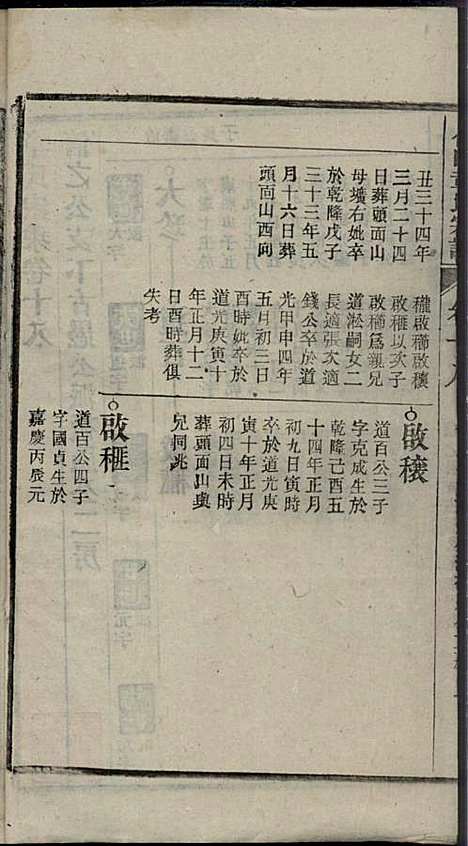 丑三十四年
三月二十四
日葬頭面山
母壙右妣卒
於乾隆戊子
三十三年五
月十六日葬
頭面山西向
穠啟穲啟穰
啟䅵以次子
啟穲爲親兄
道淞嗣女二
長適張次適
錢公卒於道
光甲申四年
五月初三日
酉時妣卒於
道光庚寅十
年正月十二
日酉時葬俱
失考
啟穰
道百公三子
字克成生於
乾隆己酉五
十四年正月
初九日寅時
卒於道光庚
寅十年正月
初四日未時
葬頭面山與
兄同兆
啟䅵
道百公四子
字國貞生於
嘉慶丙辰元